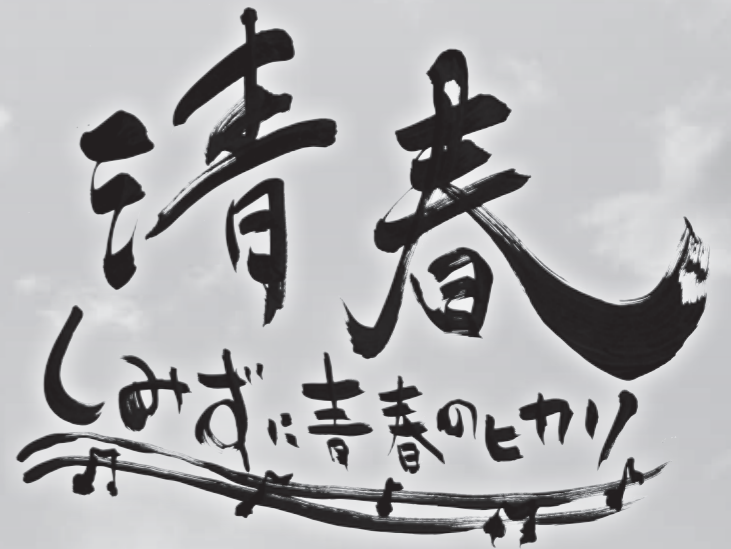 清春
しみずに青春のヒカリ